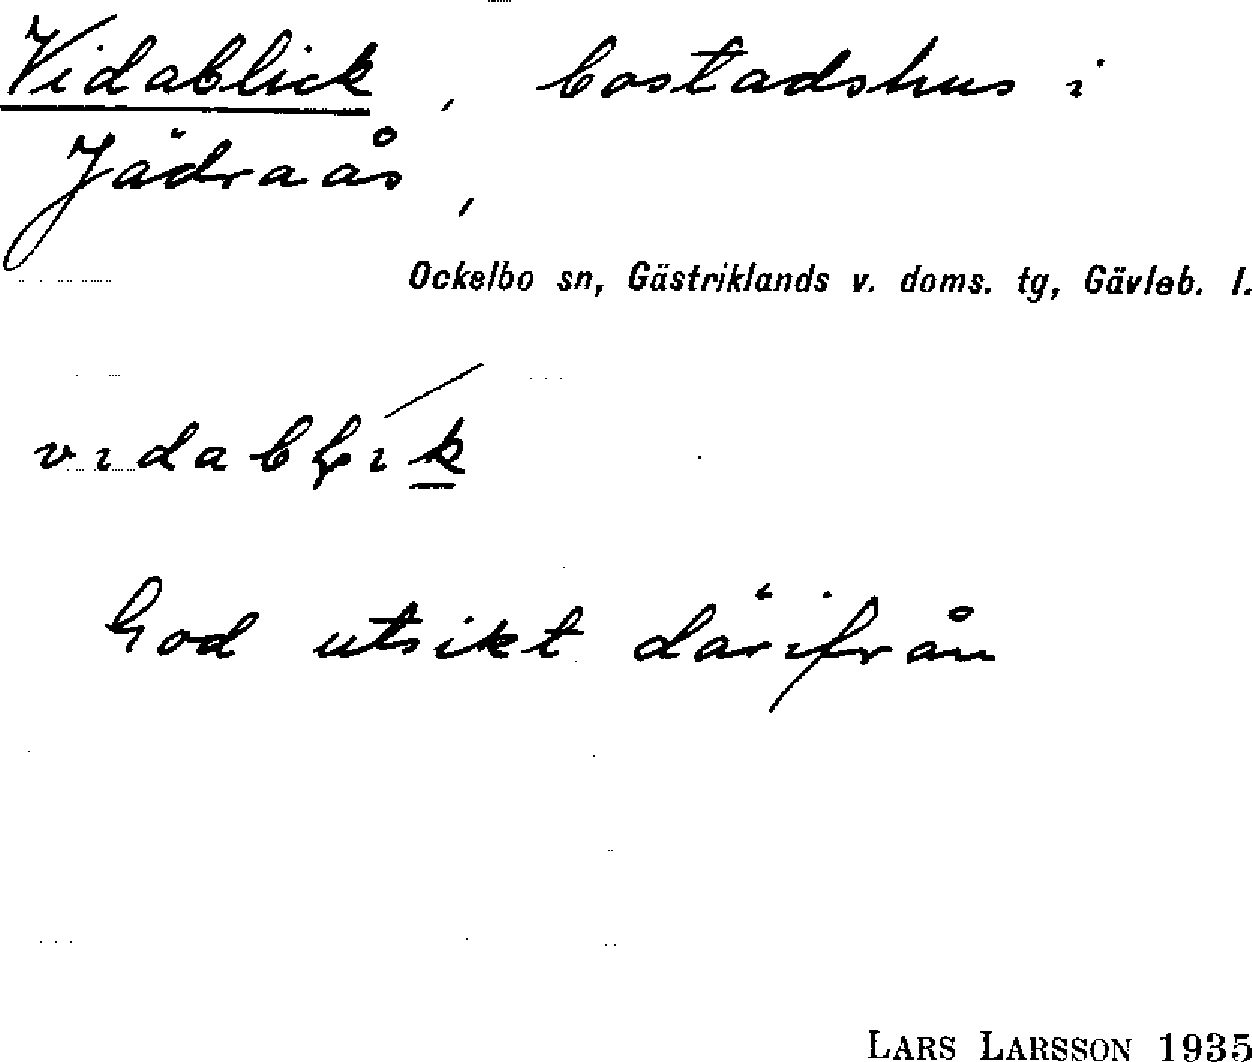 Vidablick, bostadshus i
Jädraås,
Ockelbo sn, Gästriklands v. doms. tg, Gävleb. l.
vıdabḷık
God utsikt därifrån
LARS LARSSON 1935